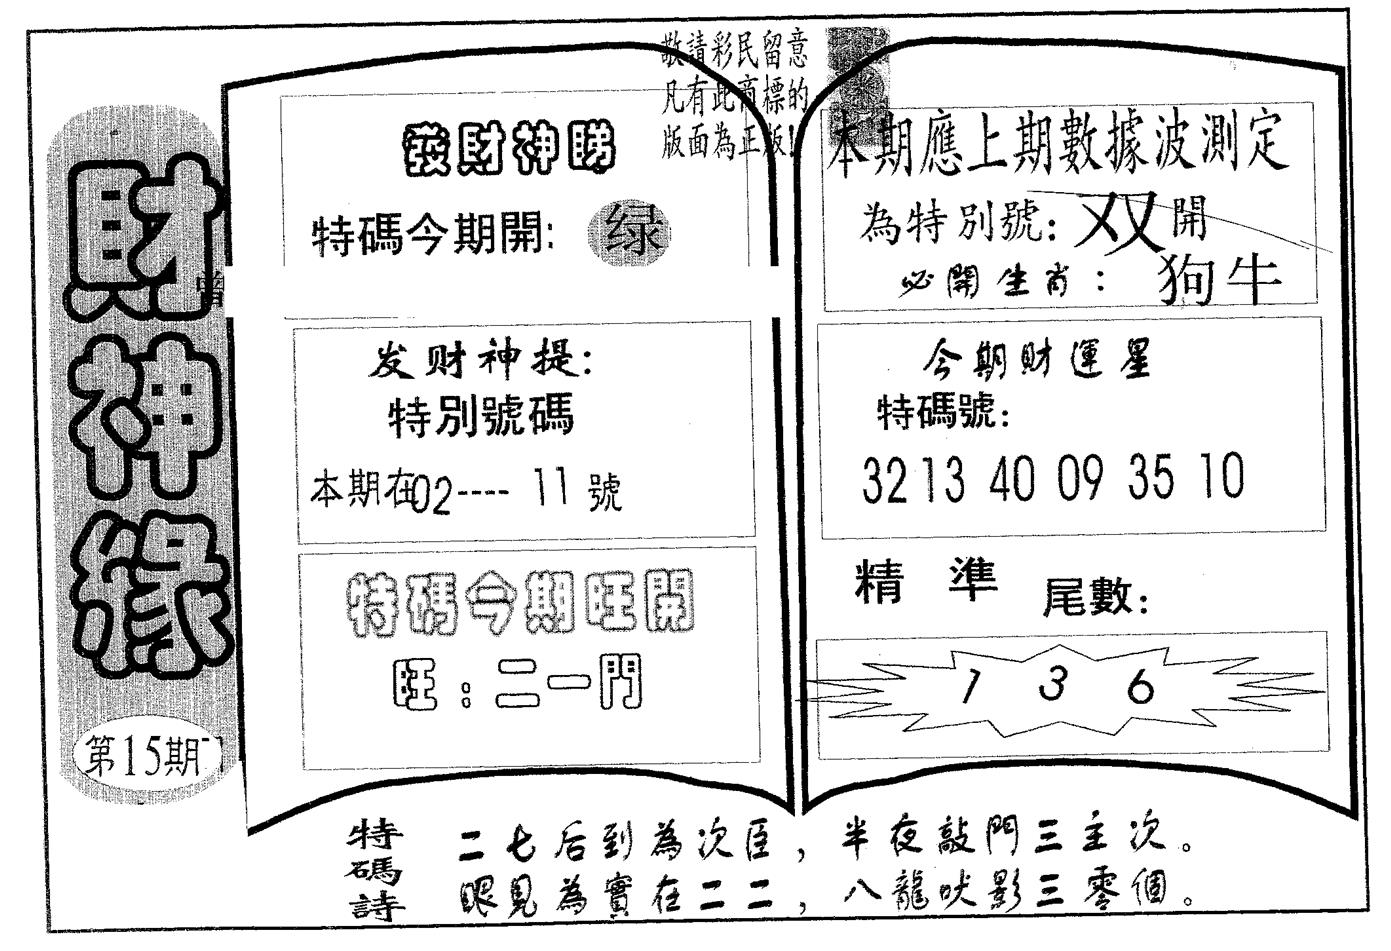 敬請彩民留意
凡有此商標的
版面為正版!
財神緣
第15期
發財神睇
特碼今期開:
绿
发财神提:
特別號碼
本期在02---- 11號
特碼今期旺開
旺:二一門
本期應上期數據波測定
為特別號:双開
必開生肖:狗牛
今期財運星
特碼號:
32 13 40 09 35 10
精準尾數:
1 3 6
特碼詩
二七后到為次臣,半夜敲門三主次。
眼見為實在二二,八龍吠影三零個。